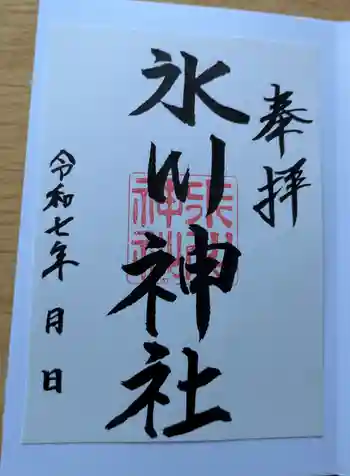 奉拝
氷川神社
令和七年 月 日
氷川
神社